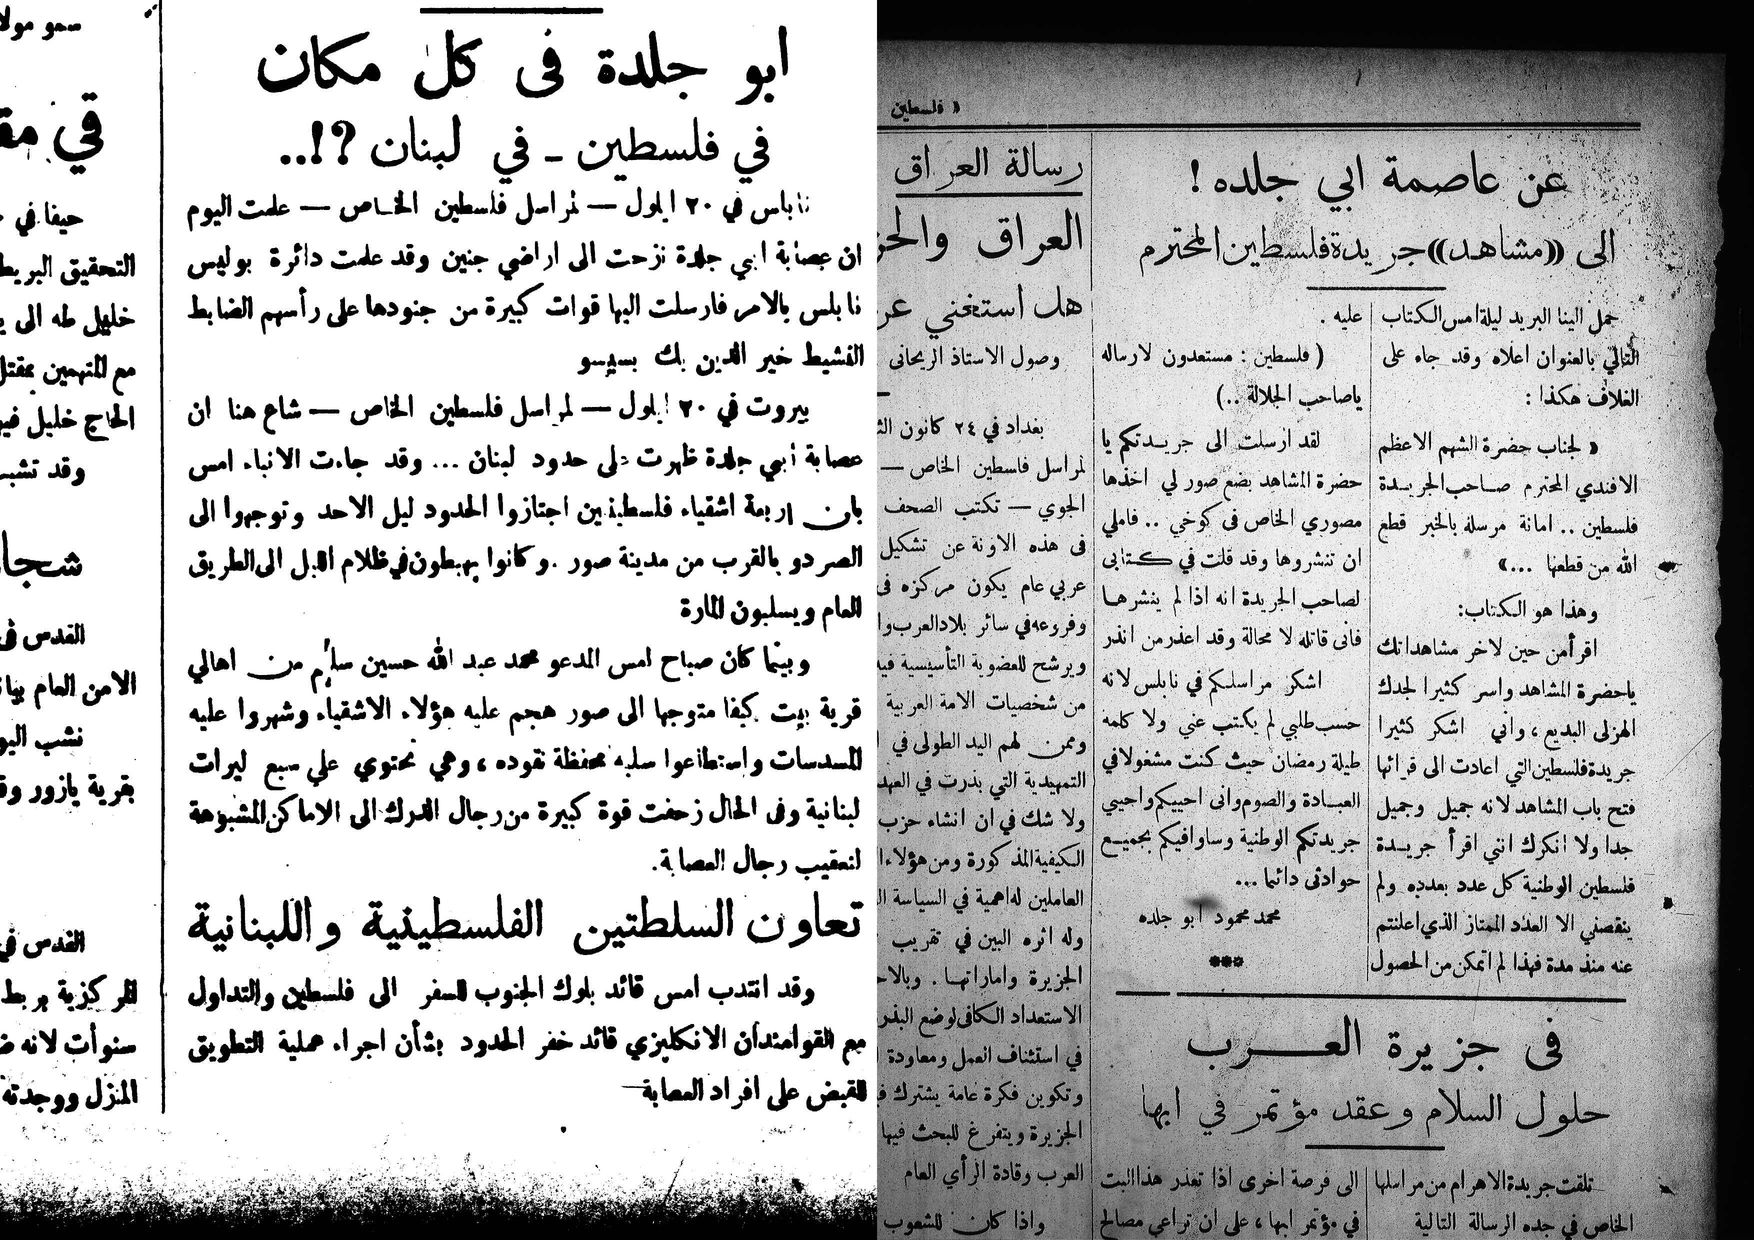 ابو جلدة فى كل مكان
في فلسطين ـ في لبنان ؟!..
نابلس في ٢٠ ايلول — لمراسل فلسطين الخاص — علمت اليوم
ان عصابة ابي جلدة نزحت الى اراضي جنين وقد علمت دائرة بوليس
نابلس بالامر فارسلت اليها قوات كبيرة من جنودها على رأسهم الضابط
النشيط خير الدين بك بسيسو
بيروت في ٢٠ ايلول — لمراسل فلسطين الخاص — شاع هنا ان
عصابة أبي جلدة ظهرت على حدود لبنان ... وقد جاءت الانباء امس
بان اربعة اشقياء فلسطينيين اجتازوا الحدود ليل الاحد وتوجهوا الى
الصردو بالقرب من مدينة صور . وكانوا يهبطون في ظلام الليل الى الطريق
العام ويسلبون المارة
وبينما كان صباح امس المدعو محمد عبد الله حسين من اهالي
قرية بيت كيفا متوجها الى صور هجم عليه هؤلاء الاشقياء وشهروا عليه
المسدسات واستطاعوا سلبه محفظة نقوده ، وهي تحتوي على سبع ليرات
لبنانية وفى الحال زحفت قوة كبيرة من رجال الدرك الى الاماكن المشبوهة
لتعقيب رجال العصابة .
تعاون السلطتين الفلسطينية واللبنانية
وقد انتدب امس قائد بلوك الجنوب للسفر الى فلسطين والتداول
مع القوامندان الانكليزي قائد خفر الحدود بشأن اجراء عملية التطويق
للقبض على افراد العصابة
سمو مولا
في مق
حيفا في
التحقيق البريط
خليل طه الى
مع المتهمين بمقتل
الحاج خليل
وقد تشب
شجا
القدس فى
الامن العام بيا
نشب اليو
بقرية يازور وق
القدس في
المركزية بربط
سنوات لانه
المنزل ووجدته
« فلسطين
عن عاصمة ابي جلده !
الى «مشاهد» جريدة فلسطين المحترم
حمل الينا البريد ليلة امس الكتاب
التالي بالعنوان اعلاه وقد جاء على
الغلاف هكذا :
« لجناب حضرة الشهم الاعظم
الافندي المحترم صاحب الجريدة
فلسطين .. امانة مرسله بالخبر قطع
الله من قطعها ...»
وهذا هو الكتاب:
اقرأ من حين لاخر مشاهداتك
ياحضرة المشاهد واسر كثيرا لجدك
الهزلى البديع ، واني اشكر كثيرا
جريدة فلسطين التي اعادت الى قرائها
فتح باب المشاهد لانه جميل وجميل
جدا ولا انكرك انني اقرأ جريدة
فلسطين الوطنية كل عدد بعدده ولم
ينقصني الا العدد الممتاز الذي اعلنتم
عنه منذ مدة فهذا لم اتمكن من الحصول
عليه .
( فلسطين : مستعدون لارساله
ياصاحب الجلالة ..)
لقد ارسلت الى جريدتكم يا
حضرة المشاهد بضع صور لي اخذها
مصوري الخاص فى كوخي .. فاملي
ان تنشروها وقد قلت في كتابى
لصاحب الجريدة انه اذا لم ينشرها
فانى قاتله لا محالة وقد اعذر من انذر
اشكر مراسلكم في نابلس لانه
حسب طلبي لم يكتب عني ولا كلمه
طيلة رمضان حيث كنت مشغولا في
العبادة والصوم وانى احييكم واحيي
جريدتكم الوطنية وساوافيكم بجميع
حوادثى دائما ...
محمد محمود ابو جلده
***
فى جزيرة العرب
حلول السلام وعقد مؤتمر في ابها
تلقت جريدة الاهرام من مراسلها
الخاص في جده الرسالة التالية
الى فرصة اخرى اذا تعذر هذا البت
في مؤتمر ابها ، على ان تراعي مصالح
رسالة العراق
العراق والحز
هل استغني عن
وصول الاستاذ الريحانى
بغداد في ٢٤ كانون
لمراسل فلسطين الخاص —
الجوي — تكتب الصحف
فى هذه الاونة عن تشكيل
عربي عام يكون مركزه
وفروعه في سائر بلاد العرب
ويرشح للعضوية التأسيسية
من شخصيات الامة العربية
وممن لهم اليد الطولى في
التمهيدية التي بذرت في العهد
ولا شك في ان انشاء حزب
الكيفية المذكورة ومن هؤلاء
العاملين له اهمية في السياسة
وله اثره البين في تقريب
الجزيرة واماراتها . وبالا
الاستعداد الكافى لوضع البذر
في استئناف العمل ومعاودة
وتكوين فكرة عامة يشترك
الجزيرة ويتفرغ للبحث فيها
العرب وقادة الرأي العام
واذا كان للشعوب